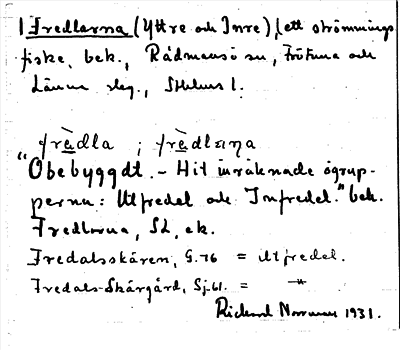 Fredlarna (Yttre och Inre), ett strömmings
fiske, bek., Rådmansö sn, Frötuna och
Länna slg., Sthlms l.
frèdla ; frèdlena
"Obebyggdt. - Hit inräknade ögrup-
perna: Utfredel och Infredel." bek.
Fredlarna, Sd, ek.
Fredalsskären, G. 76 = Utfredel.
Fredals-Skärgård, Sj. 61. = -"-
Rickard 1931.